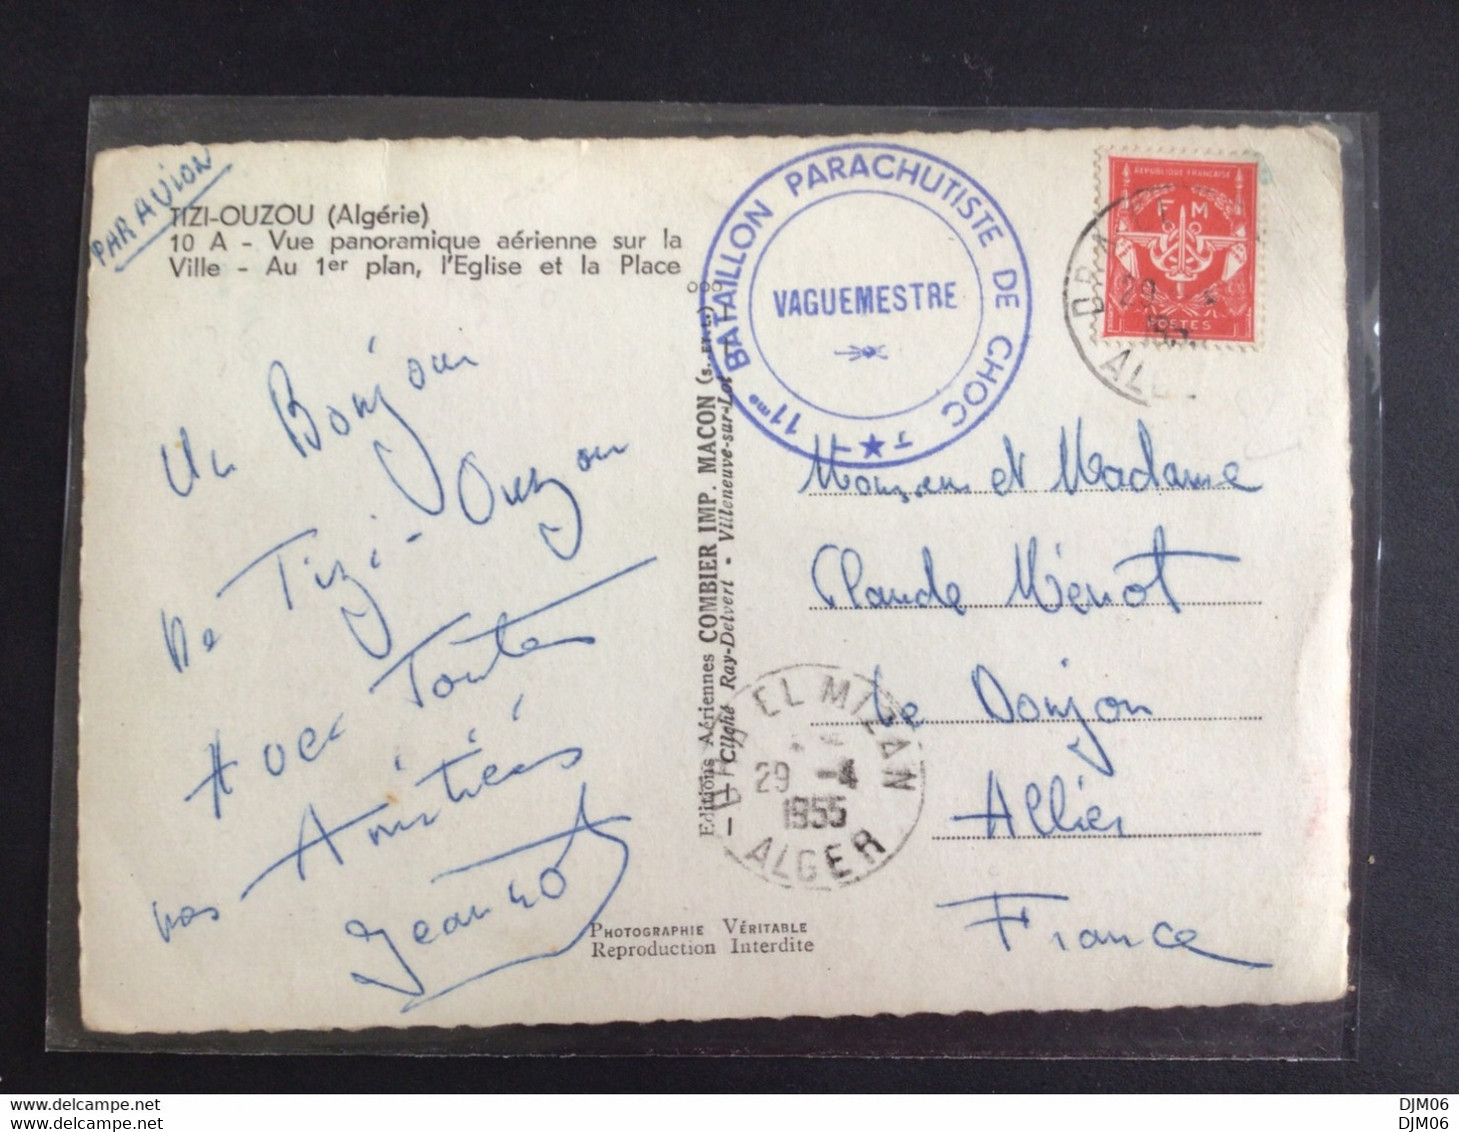 PAR AVION
TIZI-OUZOU (Algérie)
10 A - Vue panoramique aérienne sur la
Ville - Au 1er plan, l'Eglise et la Place
Un Bonjour
De Tizi-Ouzou
Avec Toutes
nos Amitiés
Jeannot
Editions Aériennes COMBIER IMP. MACON (S.-ET-L.)
Cliché Ray-Delvert - Villeneuve-sur-Lot
PHOTOGRAPHIE VÉRITABLE
Reproduction Interdite
11me BATAILLON PARACHUTISTE DE CHOC
VAGUEMESTRE
REPUBLIQUE FRANÇAISE
F M
POSTES
DRA
29
ALG
Monsieur et Madame
Claude Ménot
Le Donjon
Allier
France
DRA EL MIZAN
29 -4
1955
ALGER
DJM06 DJM06
DJM06 DJM06